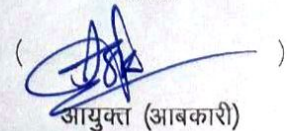 ( )
आयुक्त (आबकारी)